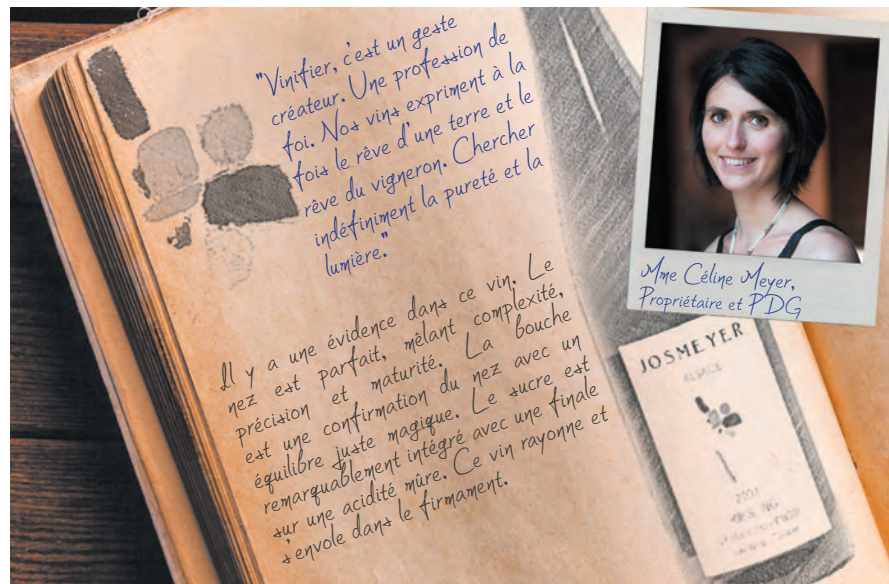 "Vinifier, c'est un geste
créateur. Une profession de
foi. Nos vins expriment à la
fois le rêve d'une terre et le
rêve du vigneron. Chercher
indéfiniment la pureté et la
lumière."
Mme Céline Meyer,
Propriétaire et PDG
Il y a une évidence dans ce vin. Le
nez est parfait, mêlant complexité,
précision et maturité. La bouche
est une confirmation du nez avec un
équilibre juste magique. Le sucre est
remarquablement intégré avec une finale
sur une acidité mûre. Ce vin rayonne et
s'envole dans le firmament.
JOSMEYER
ALSACE
RIESLING